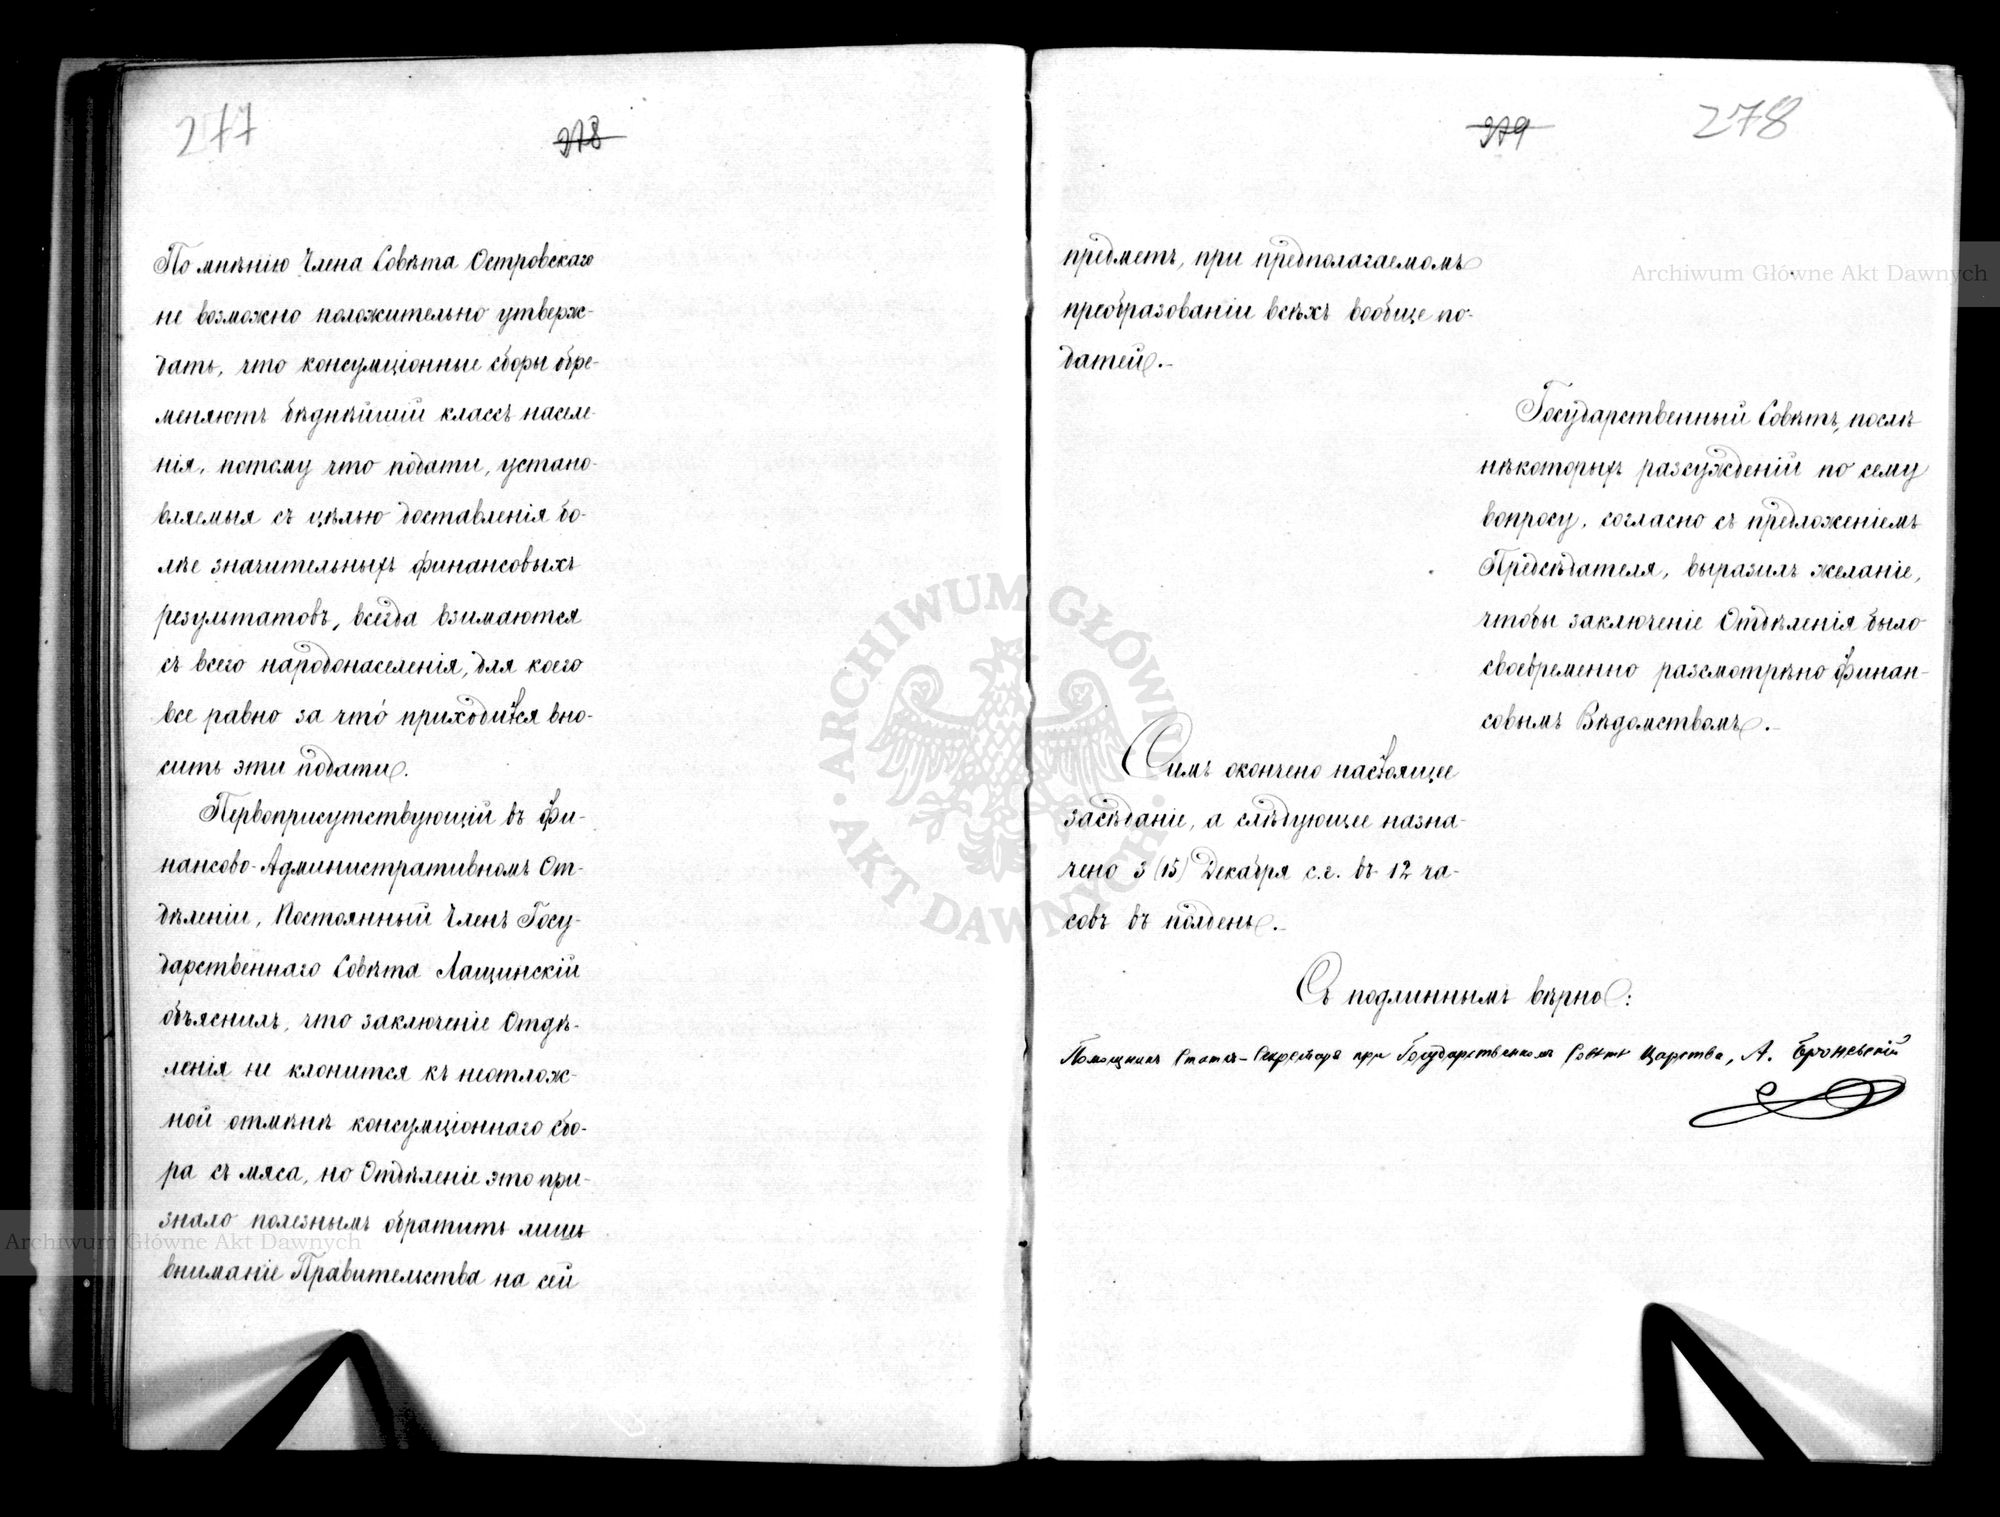 277
378
По мнѣнію Члена Совѣта Островскаго
не возможно положительно утверж-
дать, что консумціонные сборы обре-
меняютъ бѣднѣйшій классъ населе-
нія, потому что подати, устано-
вляемыя съ цѣлью доставленія бо-
лѣе значительныхъ финансовыхъ
результатовъ, всегда взимаются
съ всего народонаселенія, для коего
все равно за что́ приходится вно-
сить эти подати.
Первоприсутствующій въ Фи-
нансово-Административномъ От-
дѣленіи, Постоянный Членъ Госу-
дарственнаго Совѣта Лащинскій
объяснилъ, что заключеніе Отдѣ-
ленія не клонится къ неотлож-
ной отмѣнѣ консумціоннаго сбо-
ра съ мяса, но Отдѣленіе это при-
знало полезнымъ обратить лишь
вниманіе Правительства на сей
379
278
предметъ, при предполагаемомъ
преобразованіи всѣхъ вообще по-
датей.-
Государственный Совѣтъ, послѣ
нѣкоторыхъ разсужденій по сему
вопросу, согласно съ предложеніемъ
Предсѣдателя, выразилъ желаніе,
чтобы заключеніе Отдѣленія было
своевременно разсмотрѣно Финан-
совымъ Вѣдомствомъ.-
Симъ окончено настоящее
засѣданіе, а слѣдующее назна-
чено 3 (15) Декабря с.г. въ 12 ча-
совъ въ полдень.-
Съ подлиннымъ вѣрно:
Помощникъ Статсъ-Секретаря при Государственномъ Совѣтѣ Царства, А. Броневскій
Archiwum Główne Akt Dawnych
Archiwum Główne Akt Dawnych
ARCHIWUM GŁÓWNE · AKT DAWNYCH ·